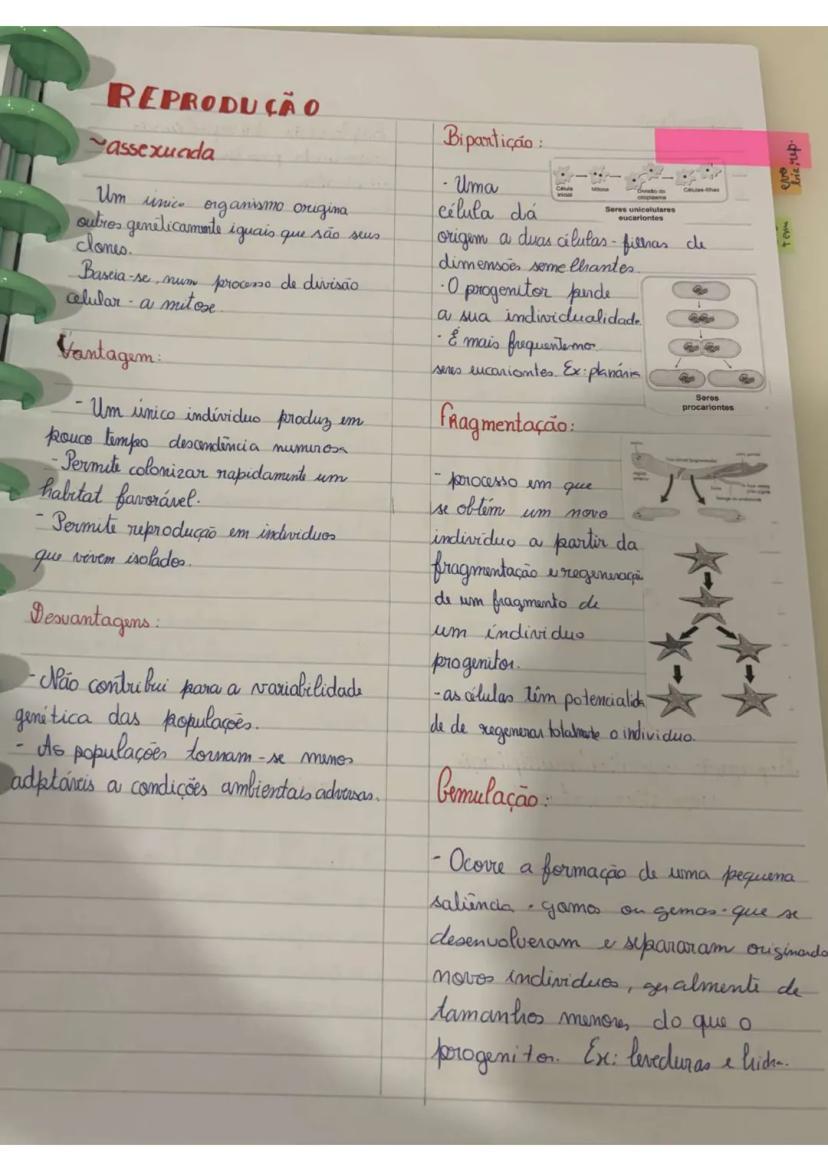 REPRODUÇÃO
~assexuada
Um único organismo origina
outros genéticamente iguais que são seus
clones.
Baseia-se, num processo de divisão
celular - a mitose.
Vantagem:
- Um único indivíduo produz em
pouco tempo descendência numerosa
- Permite colonizar rapidamente um
habitat favorável.
- Permite reprodução em individuos
que vivem isolados.
Desvantagens:
- Não contribui para a variabilidade
genética das populações.
- As populações tornam-se menos
adptáveis a condições ambientais adversas.
Bipartição:
- Uma
célula dá
origem a duas células-filhas de
dimensões semelhantes.
- O progenitor perde
a sua individualidade.
- É mais frequente nos
seres eucariontes. Ex: planária
Célula inicial
Mitose
Divisão do citoplasma
Células-filhas
Seres unicelulares
eucariontes
Seres
procariontes
Fragmentação:
- processo em que
se obtém um novo
indivíduo a partir da
fragmentação e regeneraçã
de um fragmento de
um individuo
progenitor.
- as células têm potencialida
de de regenerar totalmente o individuo.
Gemulação:
- Ocorre a formação de uma pequena
saliência - gomos ou gemas - que se
desenvolveram e separaram originando
novos individuos, geralmente de
tamanhos menores, do que o
progenitor. Ex: leveduras e hidra.